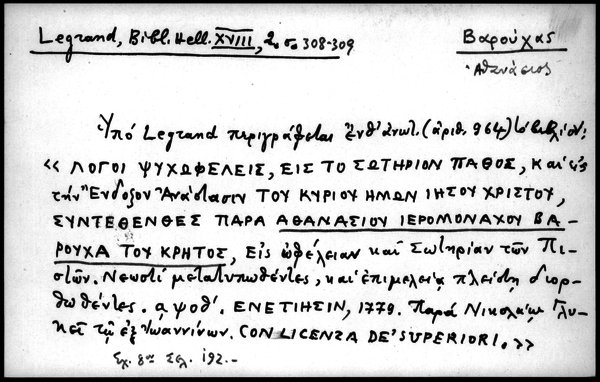 Legrand, Bibl. Hell. XVIII, 2, σσ 308-309
Βαρούχας
Ἀθανάσιος
Ὑπό Legrand περιγράφεται ἔνθ' ἀνωτ. (ἀριθ. 964) τό βιβλίον:
« ΛΟΓΟΙ ΨΥΧΩΦΕΛΕΙΣ, ΕΙΣ ΤΟ ΣΩΤΗΡΙΟΝ ΠΑΘΟΣ, καί εἰς
τήν Ἔνδοξον Ἀνάστασιν ΤΟΥ ΚΥΡΙΟΥ ΗΜΩΝ ΙΗΣΟΥ ΧΡΙΣΤΟΥ,
ΣΥΝΤΕΘΕΝΘΕΣ ΠΑΡΑ ΑΘΑΝΑΣΙΟΥ ΙΕΡΟΜΟΝΑΧΟΥ ΒΑ-
ΡΟΥΧΑ ΤΟΥ ΚΡΗΤΟΣ, Εἰς ὠφέλειαν καί Σωτηρίαν τῶν Πι-
στῶν. Νεωστί μετατυπωθέντες, καί ἐπιμελείᾳ πλείστῃ διορ-
θωθέντες. αψοθ'. ΕΝΕΤΙΗΣΙΝ, 1779. Παρά Νικολάῳ Γλυ-
κεῖ τῷ ἐξ Ἰωαννίνων. CON LICENZA DE' SUPERIORI. »
Σχ. 8ον Σελ. 192.-